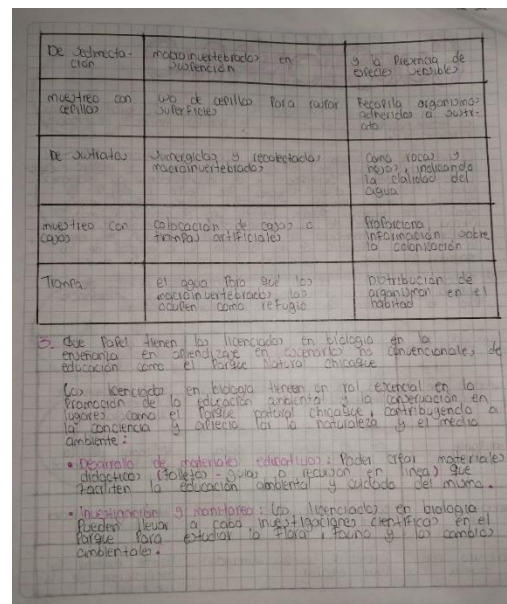 De sedimecta-
ción
macroinvertebrados en
suspención
y la Presencia de
especies sensibles
muestreo con
cepillos
uso de cepillos Para raspar
superficies
Recopila organismos
adheridos a sustr-
ato
De sustratos
sumergidos y recolectados
macroinvertebrados
como rocas y
hojas, indicando
la clalidad del
agua
muestreo con
cajas
colocación de cajas o
trampas artificiales
Proporciona
información sobre
la colonización
Trampa
el agua Para que los
macroinvertebrados los
ocupen como refugio
Distribución de
organismos en el
habitad
3. Que Papel tienen los licenciados en biología en la
enseñanza en aprendizaje en escenarios no convencionales de
educación como el Parque Natural chicaque
Los licenciados en biología tienen un rol esencial en la
Promoción de la educación ambiental y la conservación en
lugares como el Parque natural chicaque, contribuyendo a
la conciencia y aprecio por la naturaleza y el medio
ambiente:
• Desarrollo de materiales educativos: Poder crear materiales
didacticos (folletos - guias o recursos en linea) que
faciliten la educación ambiental y cuidado del mismo.
• Investigación y monitoreo: Los licenciados en biología
Pueden llevar a cabo investigaciones cientificas en el
Parque Para estudiar la flora, fauna y los cambios
ambientales.